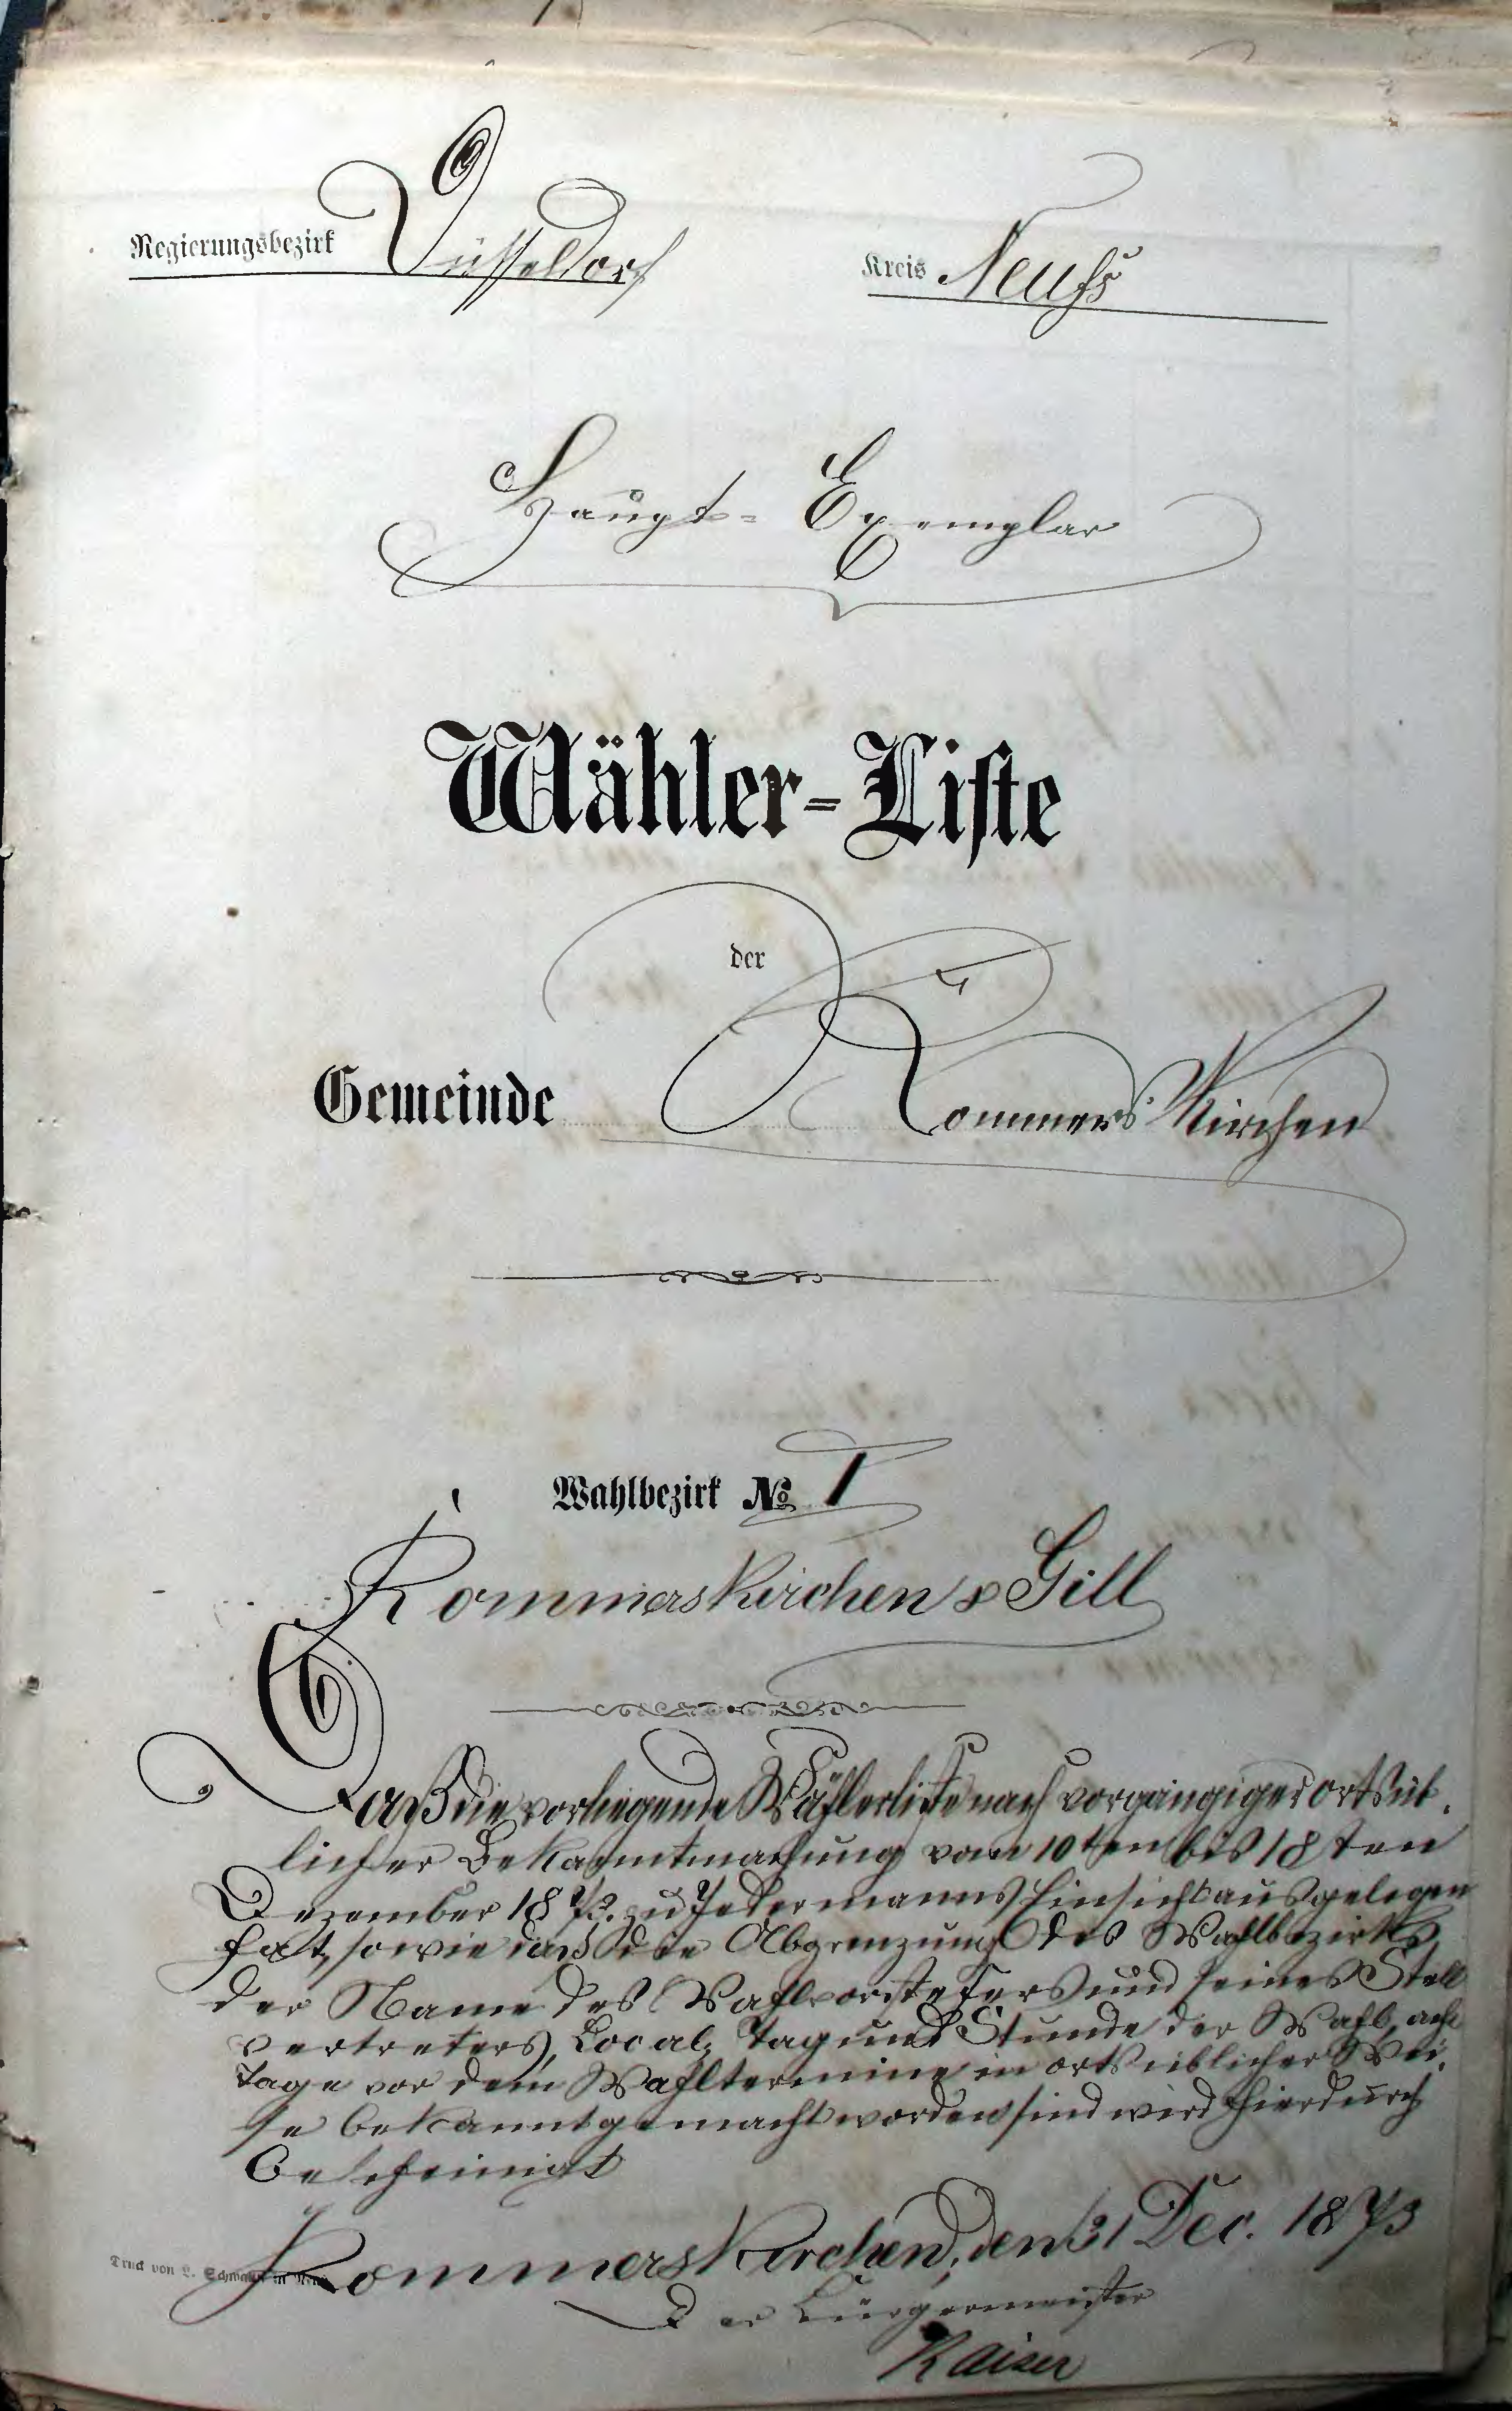 Regierungsbezirk Düsseldorf
Kreis Neuſs
Haupt-Exemplar
Wähler-Liste
der
Gemeinde Rommerskirchen
Wahlbezirk No. I
Rommerskirchen & Gill
Daß die vorliegende Wählerliste nach vorgängiger ortsüb-
licher Bekanntmachung vom 10ten bis 18ten
Dezember 1873. zu Jedermanns Einsicht ausgelegen
hat, sowie daß die Abgrenzung des Wahlbezirks,
der Name des Wahlvorstehers und seines Stell
vertreters, Local, Tag und Stunde der Wahl, acht
Tage vor dem Wahltermine in ortsüblicher Wei-
se bekannt gemacht worden sind wird hierdurch
bescheinigt
Rommerskirchen, den 31 Dec. 1873
Der Bürgermeister
Kaiser
Druck von L. Schwann in Neuß